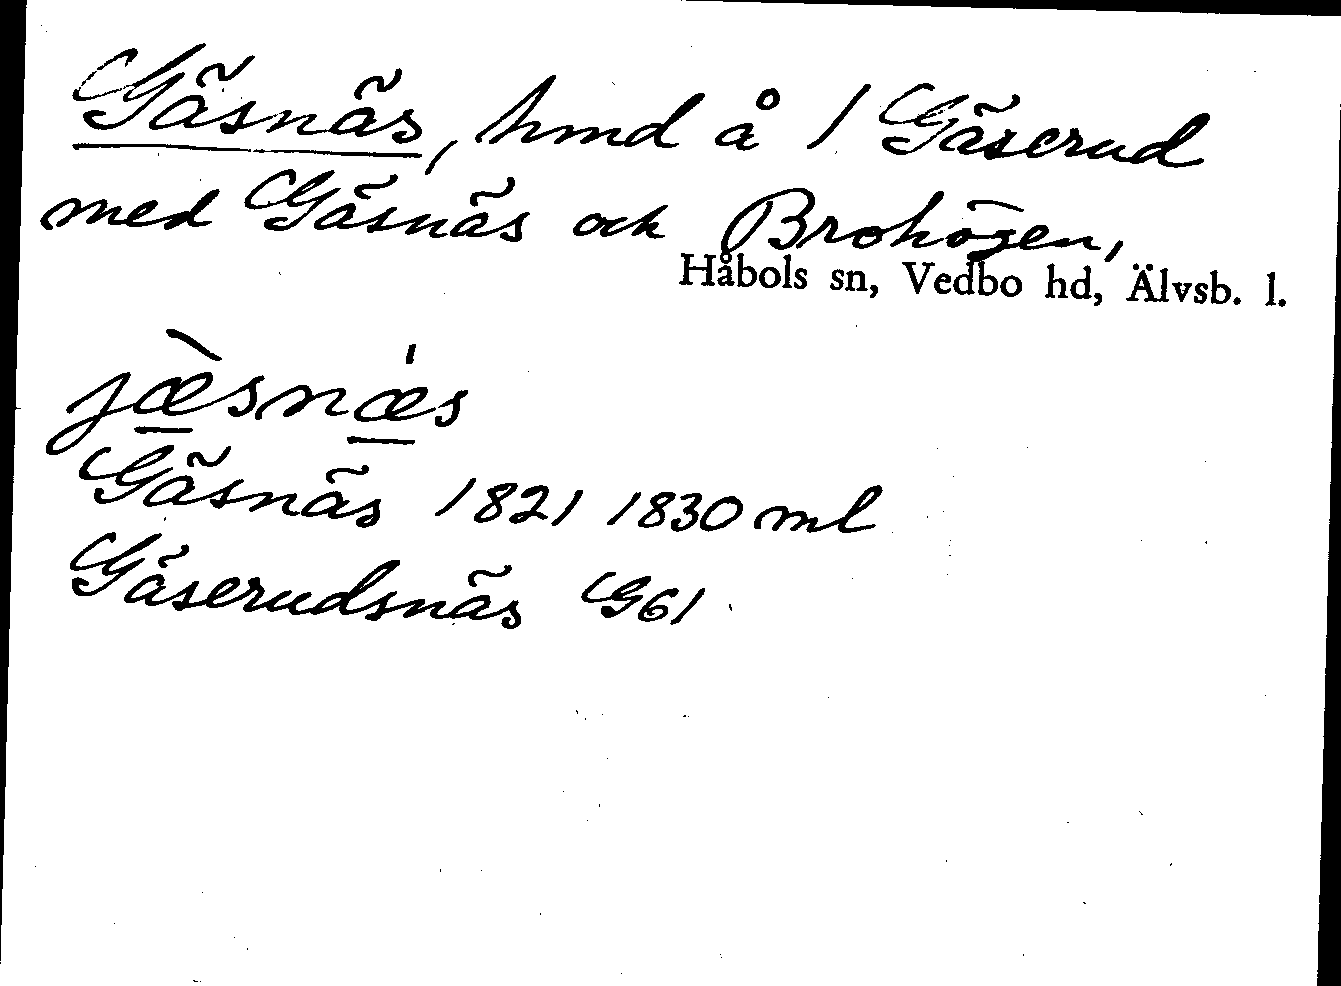 Gäsnäs, hmd å 1 Gäserud
med Gäsnäs och Brohögen,
Håbols sn, Vedbo hd, Älvsb. l.
jæ̀snæ̍s
Gäsnäs 1821 1830 ml
Gäserudsnäs G61